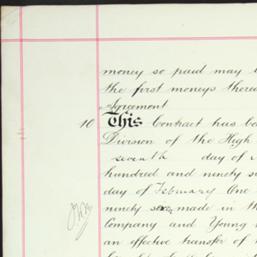 money so paid may b
the first moneys there
Agreement
10 This Contract has be
Division of the High
seventh day of
hundred and ninety s
day of February One
ninety made in th
Company and Young
an effective transfer of